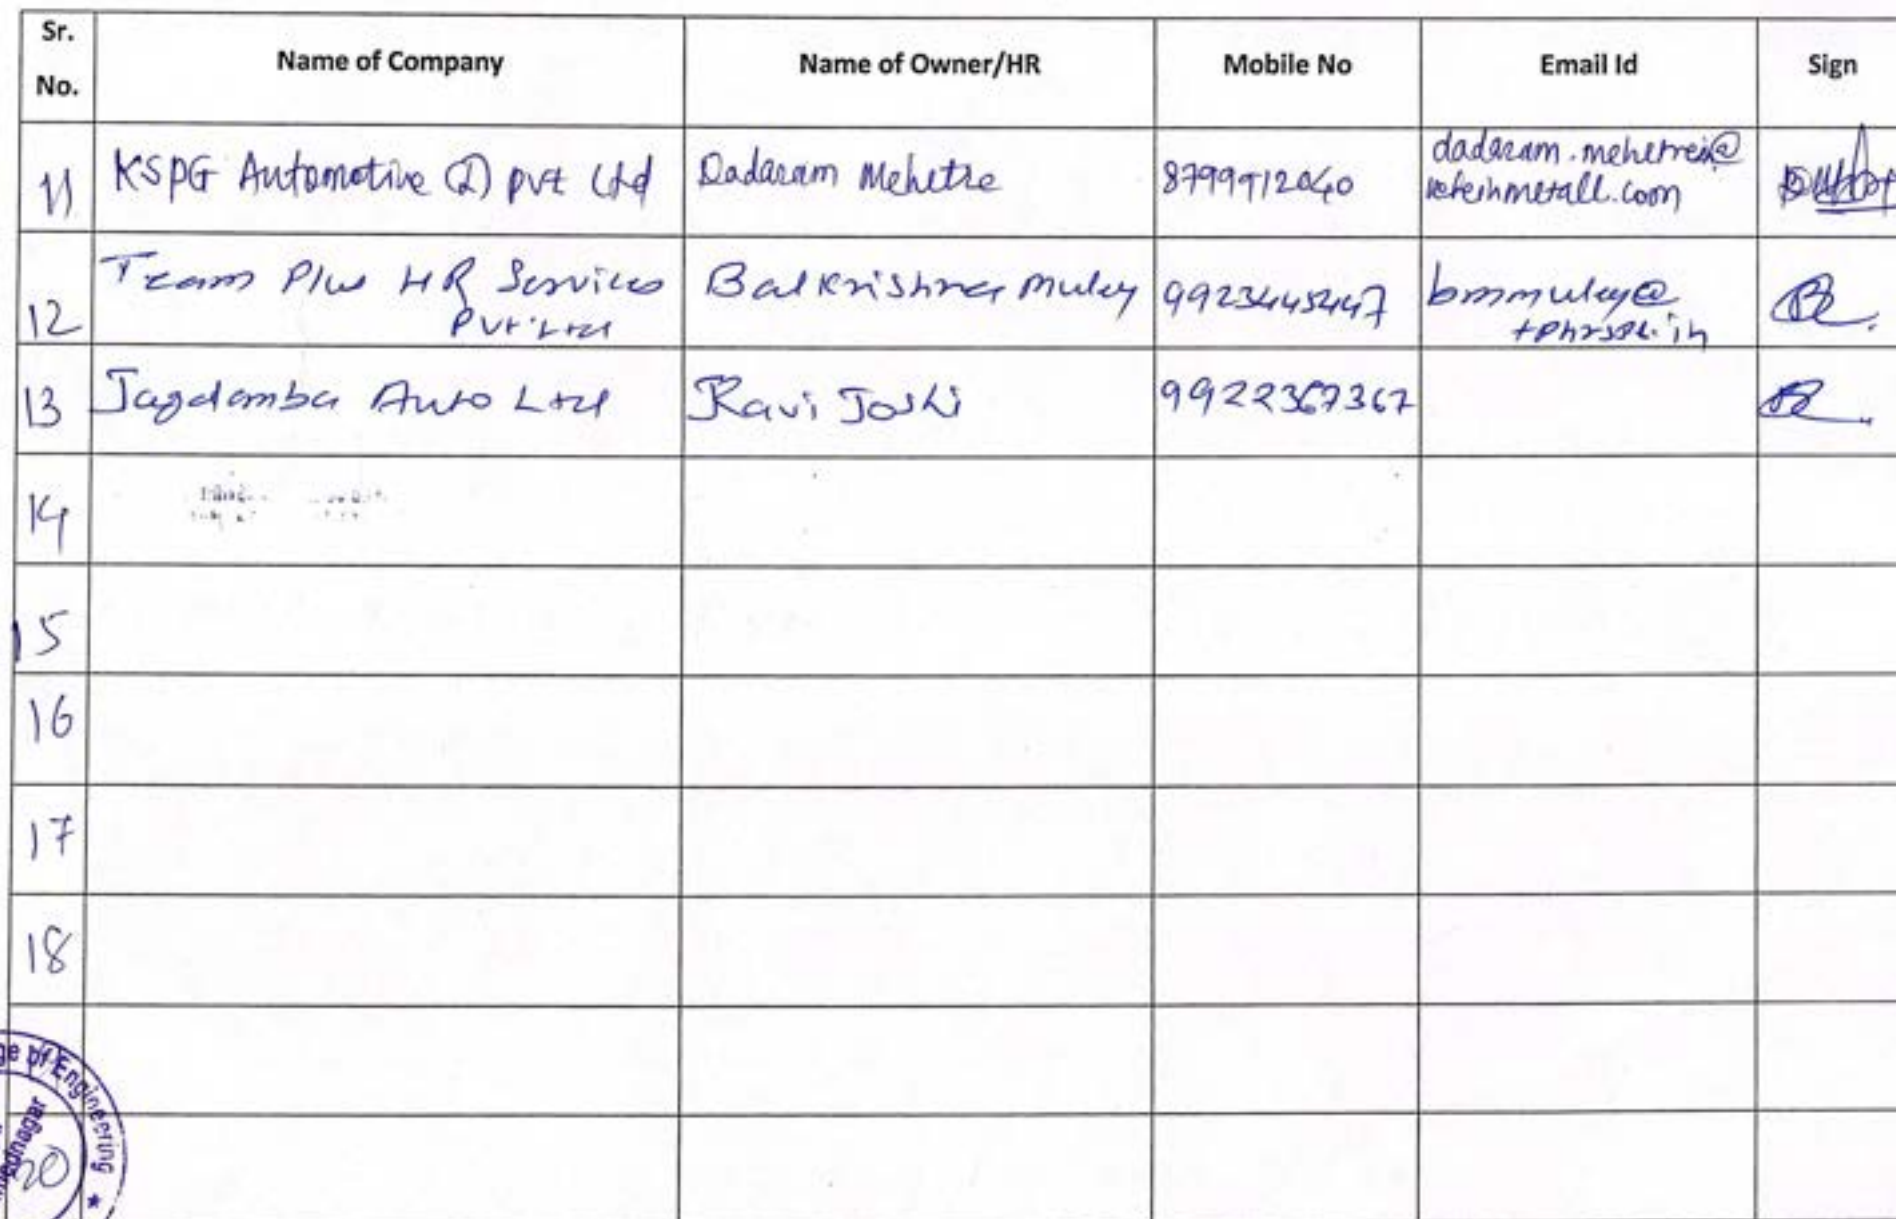 Sr. No. Name of Company Name of Owner/HR Mobile No Email Id Sign
11 KSPG Automotive (I) pvt Ltd Dadaram Mehetre 8799912040 dadaram.mehetre@
12 Team Plus HR Services Balkrishna Muley bmmuley@
Pvt. Ltd
13 Jagdamba Auto Ltd Ravi Joshi 9922367367
14
15
16
17
18
of Engineering
20